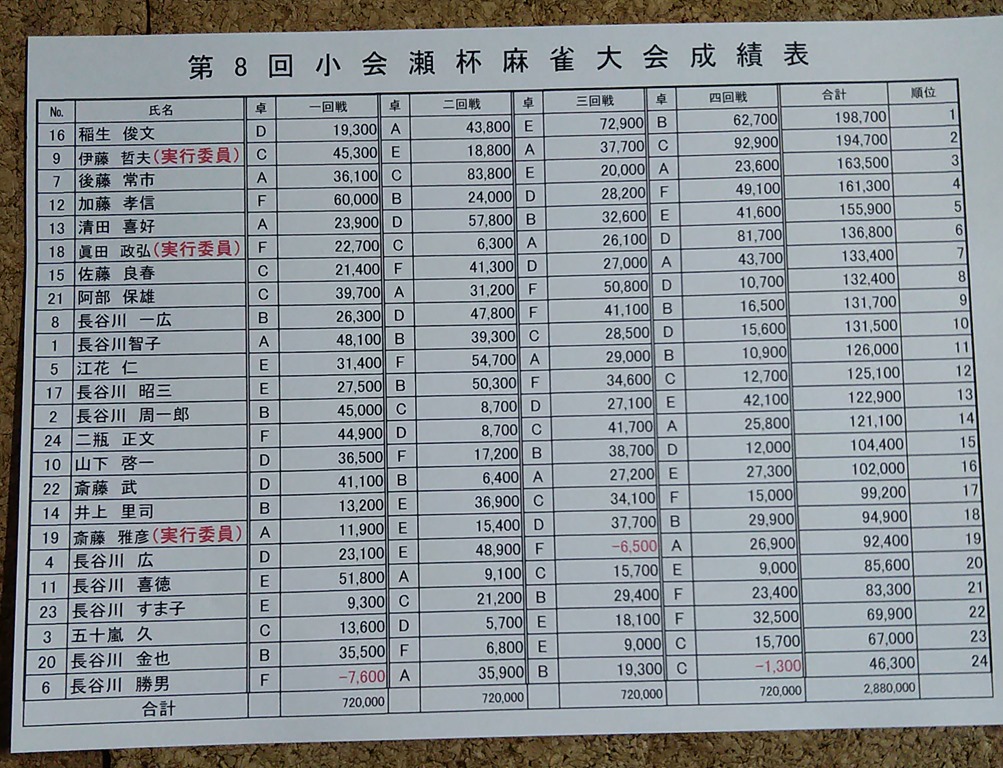 第8回小会瀬杯麻雀大会成績表
No. 氏名 卓 一回戦 卓 二回戦 卓 三回戦 卓 四回戦 合計 順位
16 稲生 俊文 D 19,300 A 43,800 E 72,900 B 62,700 198,700 1
9 伊藤 哲夫(実行委員) C 45,300 E 18,800 A 37,700 C 92,900 194,700 2
7 後藤 常市 A 36,100 C 83,800 E 20,000 A 23,600 163,500 3
12 加藤 孝信 F 60,000 B 24,000 D 28,200 F 49,100 161,300 4
13 清田 喜好 A 23,900 D 57,800 B 32,600 E 41,600 155,900 5
18 眞田 政弘(実行委員) F 22,700 C 6,300 A 26,100 D 81,700 136,800 6
15 佐藤 良春 C 21,400 F 41,300 D 27,000 A 43,700 133,400 7
21 阿部 保雄 C 39,700 A 31,200 F 50,800 D 10,700 132,400 8
8 長谷川 一広 B 26,300 D 47,800 F 41,100 B 16,500 131,700 9
1 長谷川智子 A 48,100 B 39,300 C 28,500 D 15,600 131,500 10
5 江花 仁 E 31,400 F 54,700 A 29,000 B 10,900 126,000 11
17 長谷川 昭三 E 27,500 B 50,300 F 34,600 C 12,700 125,100 12
2 長谷川 周一郎 B 45,000 C 8,700 D 27,100 E 42,100 122,900 13
24 二瓶 正文 F 44,900 D 8,700 C 41,700 A 25,800 121,100 14
10 山下 啓一 D 36,500 F 17,200 B 38,700 D 12,000 104,400 15
22 斎藤 武 D 41,100 B 6,400 A 27,200 E 27,300 102,000 16
14 井上 里司 B 13,200 E 36,900 C 34,100 F 15,000 99,200 17
19 斎藤 雅彦(実行委員) A 11,900 E 15,400 D 37,700 B 29,900 94,900 18
4 長谷川 広 D 23,100 E 48,900 F -6,500 A 26,900 92,400 19
11 長谷川 喜徳 E 51,800 A 9,100 C 15,700 E 9,000 85,600 20
23 長谷川 すま子 E 9,300 C 21,200 B 29,400 F 23,400 83,300 21
3 五十嵐 久 C 13,600 D 5,700 E 18,100 F 32,500 69,900 22
20 長谷川 金也 B 35,500 F 6,800 E 9,000 C 15,700 67,000 23
6 長谷川 勝男 F -7,600 A 35,900 B 19,300 C -1,300 46,300 24
合計 720,000 720,000 720,000 720,000 2,880,000